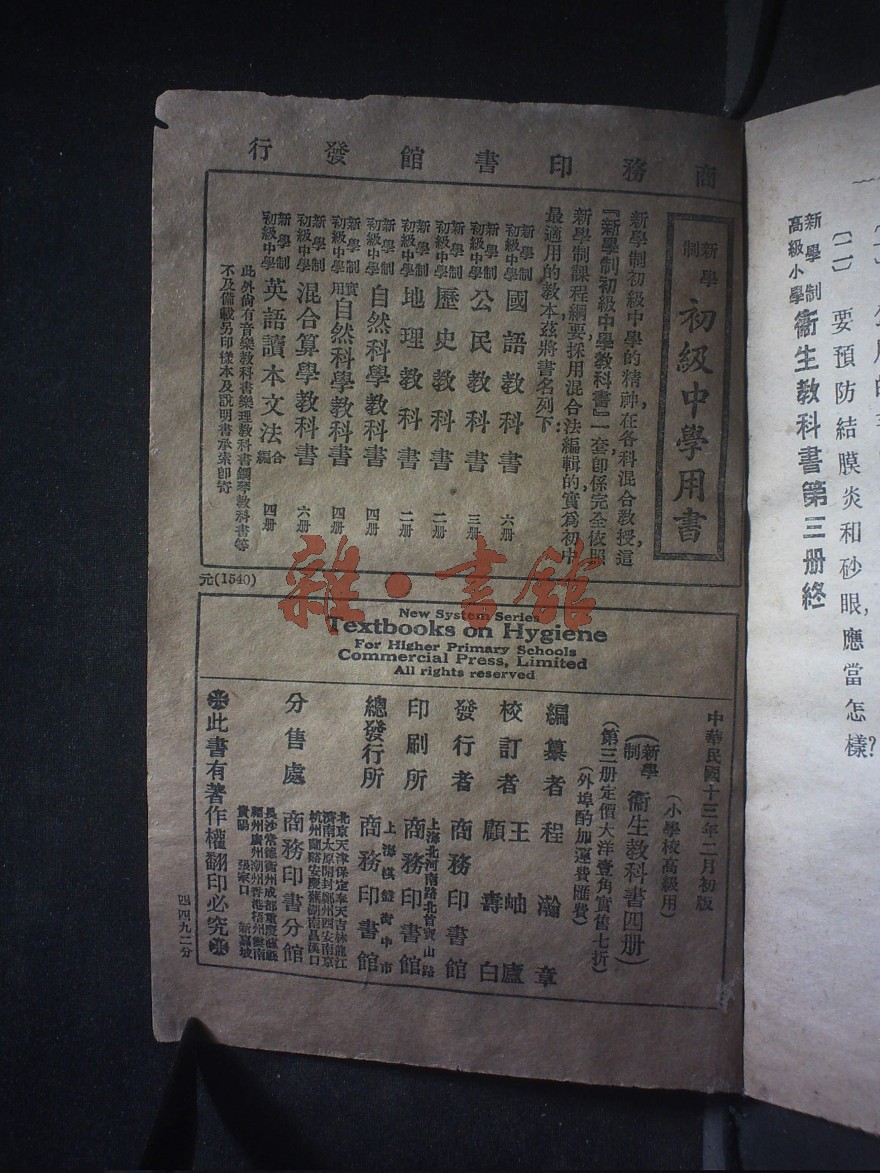 〔二〕 要預防結膜炎和砂眼，應當怎樣？
新學制高級小學 衞生教科書第三册終
商務印書館發行
新學制 初級中學用書
新學制初級中學的精神，在各科混合教授，這
『新學制初級中學教科書』一套，卽係完全依照
新學制課程綱要，採用混合法編輯的，實爲初中
最適用的教本，茲將書名列下：
新學制初級中學 國語教科書 六册
新學制初級中學 公民教科書 三册
新學制初級中學 歷史教科書 二册
新學制初級中學 地理教科書 二册
新學制初級中學 自然科學教科書 四册
新學制初級中學 實用自然科學教科書 四册
新學制初級中學 混合算學教科書 六册
新學制初級中學 英語讀本文法合編 四册
此外尙有音樂教科書樂理教科書鋼琴教科書等
不及備載另印樣本及說明書承索卽寄
元(1540)
雜·書館
New System Series
Textbooks on Hygiene
For Higher Primary Schools
Commercial Press, Limited
All rights reserved
中華民國十三年二月初版
（小學校高級用）
（新學制 衞生教科書四册）
（第三册定價大洋壹角實售七折）
（外埠酌加運費匯費）
編纂者 程瀚章
校訂者 王岫廬 顧壽白
發行者 商務印書館
印刷所 上海北河南路北首寶山路 商務印書館
總發行所 上海棋盤街中市 商務印書館
分售處 商務印書分館
北京天津保定奉天吉林龍江
濟南太原開封鄭州西安南京
杭州蘭谿安慶蕪湖南昌漢口
長沙常德衡州成都重慶瀘縣
福州廣州潮州香港梧州雲南
貴陽 張家口 新嘉坡
※此書有著作權翻印必究※
四四九二分